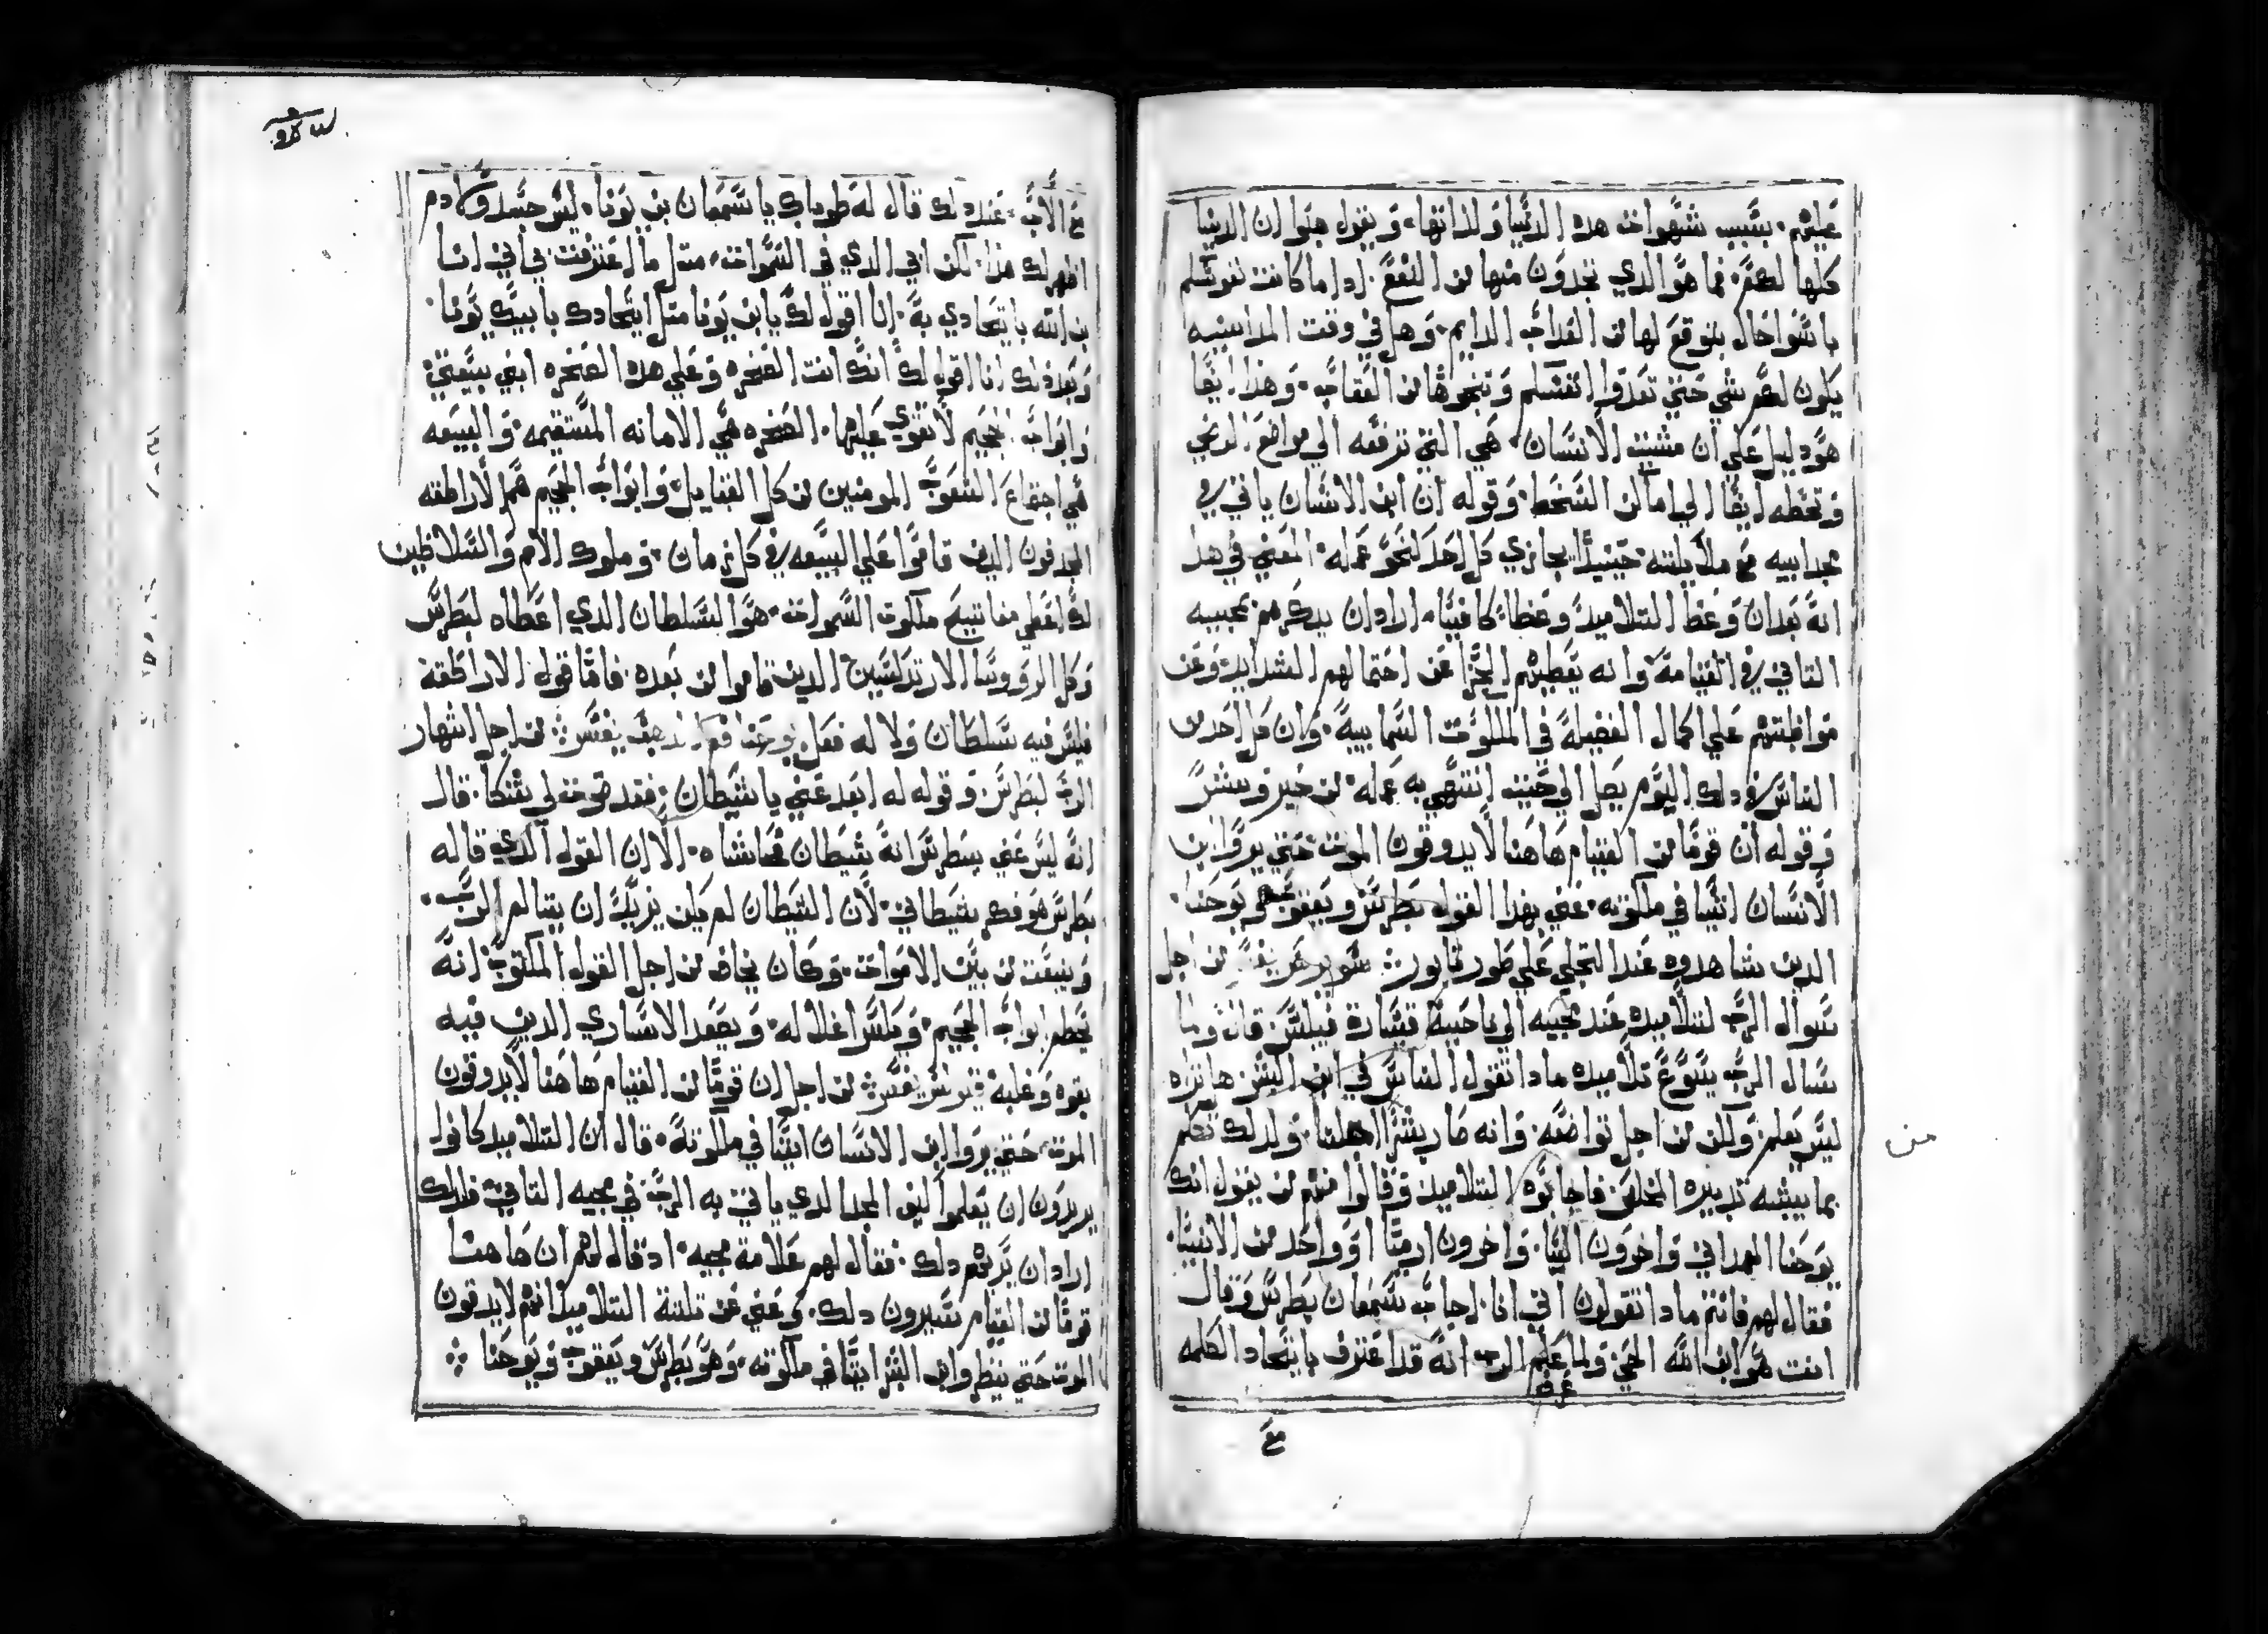 عليهم. بسبب شهوات هده الدنيا ولذاتها. ويقول هبوا ان الدنيا
كلها لكم. فما هو الدي تجدون منها من النفع. ادا ما كانت نفوسكم
باسوا حال بتوقع لها من العداب الدايم. وهل في وقت المداينيه
يكون لكم شي حتي تعدوا انفسكم وتنجوها من العقاب. وهذا ايضا
هو دليل علي ان مشيت الانسان. هي التي ترفعه الي مواضع
وتحطه ايضا الي اماكن السخط. وقوله ان ابن الانسان ياتي في
مجد ابيه مع ملايكته حينيدا يجازي كل احد كنحو عمله. المعني في هدا
انه بعد ان وعظ التلاميد وعظا كافيا. اراد ان يدكرهم بمجييه
التاني في القيامة وانه يعطيهم الجزا عن احتمالهم الشدايد وعن
مواظبتهم علي اكمال الفضيلة في الملكوت السماييه. وان كل احد من
الناس في دلك اليوم يصل الي حيت انتهي به عمله. من خير وشر
وقوله ان قوما من القيام هاهنا لا يدوقون الموت حتي يروا ابن
الانسان اتيا في ملكوته. عني بهدا القول بطرس ويعقوب ويوحنا.
الدين شاهدوه عند التجلي علي طور تابور من اجل
سوال الرب لتلاميده عند مجييه الي ناحية قيسارة فيلبس. قال ولما
سال الرب يسوع تلاميده مادا تقول الناس في ابن البشر. هاتره
ليس يعلم. ولكن من اجل تواضعه. وانه صار بشرا لاجلنا. ولدلك تكلم
بما يشبه تدبيره الخلاص. فاجابوه التلاميد وقالوا منهم من يقول انك
يوحنا المعمداني واخرون اليا. واخرون ارميا او واحد من الانبيا.
فقال لهم فانتم مادا تقولون اني انا. اجاب سمعان بطرس وقال
انت هو ابن الله الحي. ولما علم الرب انه قد اعترف باتحاد الكلمه
مع
من
مع الاب. عند دلك قال له طوباك يا سمعان بن يونا. ليس جسد ودم
اظهر لك هدا. لكن ابي الدي في السموات. متل ما اعترفت بي اني انا
بن الله باتحادي به. انا اقول لك يا ابن يونا متل اتحادك بابيك يونا.
وبعد دلك انا اقول لك انك انت الصخره وعلي هده الصخره ابني بيعتي
وابواب الجحيم لا تقوي عليها. الصخره هي الامانه المستقيمه. والبيعه
هي اجتماع الشعوب المومنين من كل القبايل. وابواب الجحيم هم الاراطقه
المجدفون الدين قاموا علي البيعه في كل زمان. وملوك الامم والسلاطين
لك اعطي مفاتيح ملكوت السموات. هو السلطان الدي اعطاه لبطرس
وكل الرووسا الارتدكسيين الدين قاموا من بعده. فاما قول الاراطقه
فليس فيه سلطان ولا له فعل. يوحنا فم الدهب يفسر من اجل انتهار
الرب لبطرس. وقوله له ابعد عني يا شيطان. فقد صرت لي شكا. قال
انه ليس عني بطرس انه شيطان فحاشاه. الا ان القول الدي قاله
بطرس هو فكر شيطاني. لان الشيطان لم يكن يريد ان يتالم الرب.
وينبعت من بين الاموات. وكان يخاف من اجل القول المكتوب انه
يحطم ابواب الجحيم. ويكسر اغلاله. ويصعد الاساري الدين فيه
بقوه وغلبة يفسر من اجل ان قوما من القيام هاهنا لا يدوقون
الموت حتي يروا ابن الانسان اتيا في ملكوته. قال ان التلاميد كانوا
يريدون ان يعلموا كيف المجد الدي ياتي به الرب في مجيه التاني. فلدلك
اراد ان يريهم دلك. فقال لهم علامة مجيه. اد قال لهم ان هاهنا
قوما من القيام سيرون دلك. وعني عن تلتة التلاميد انهم لا يدقون
الموت حتي ينظروا ابن البشر اتيا في ملكوته. وهو بطرس ويعقوب ويوحنا